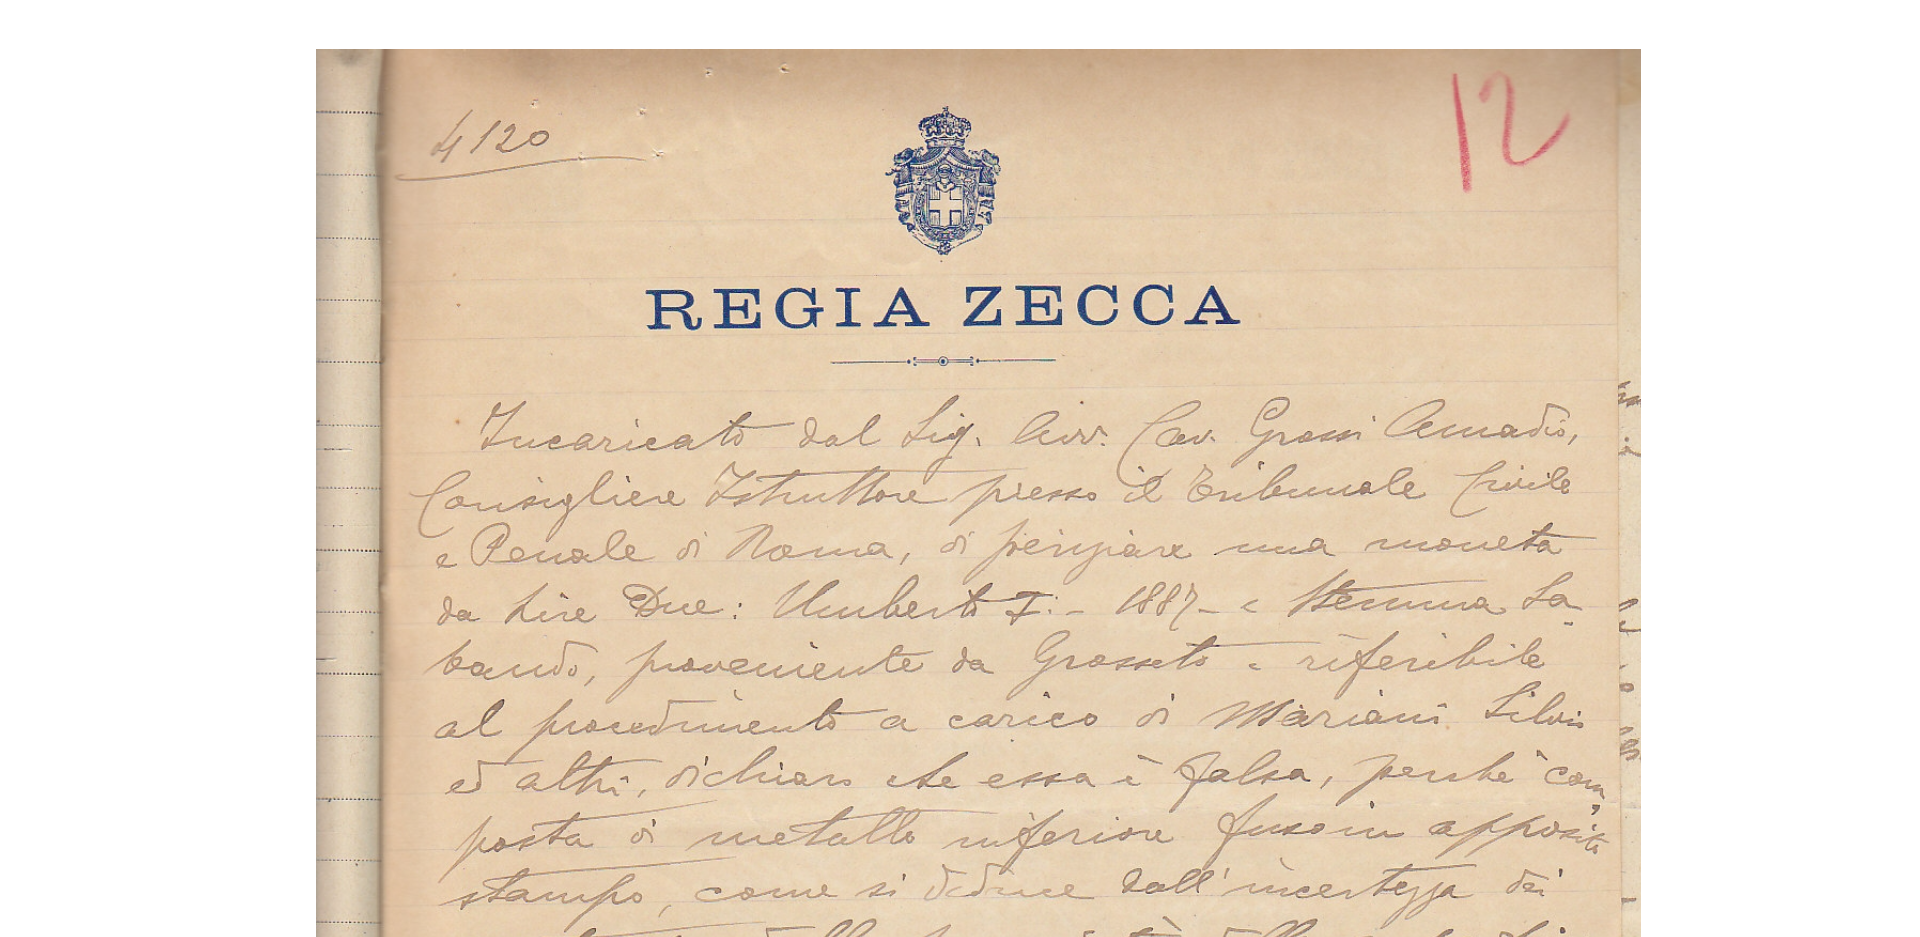 4120
12
REGIA ZECCA
Incaricato dal Sig. Avv. Cav. Grossi Amadio,
Consigliere Istruttore presso il Tribunale Civile
e Penale di Roma, di periziare una moneta
da Lire Due: Umberto I. - 1887 - e Stemma Sa-
baudo, proveniente da Grosseto e riferibile
al procedimento a carico di Mariani Silvio
ed altri, dichiaro che essa è falsa, perchè com-
posta di metallo inferiore fuso in apposito
stampo, come si deduce dall'incertezza dei